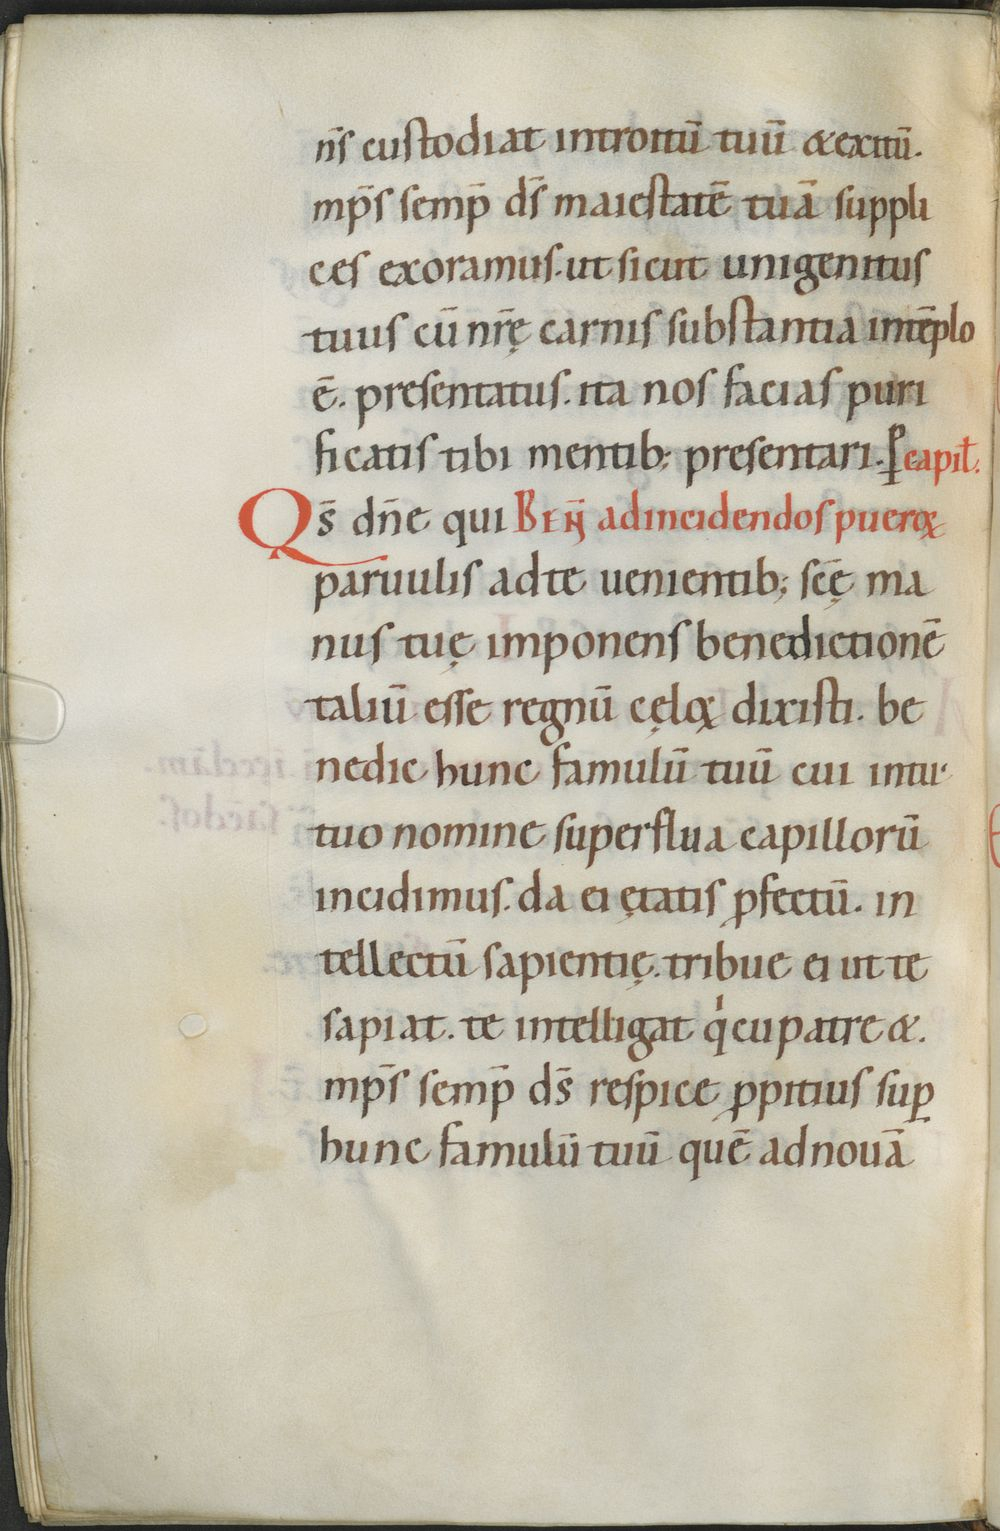 n̄s custodiat introitū tuū & exitū.
mp̄s semp̄ ds̄ maiestatē tuā suppli
ces exoramus. ut sicut unigenitus
tuus cū nr̄ę carnis substantia intēplo
ē. presentatus. ita nos facias puri
ficatis tibi mentib; presentari. ꝑ capit̄.
Qs̄ dn̄e qui BEN̄ adincidendos pueroꝝ
paruulis ad te uenientib; sc̄ę ma
nus tuę imponens benedictionē
taliū esse regnū cęloꝝ dixisti. be
nedic hunc famulū tuū cui intu
tuo nomine superflua capillorū
incidimus. da ei ętatis ꝓfectū. in
tellectū sapientię. tribue ei ut te
sapiat. te intelligat qͥ cu patre &.
mp̄s semp̄ ds̄ respice ꝓpitius suꝑ
hunc famulū tuū quē ad nouā